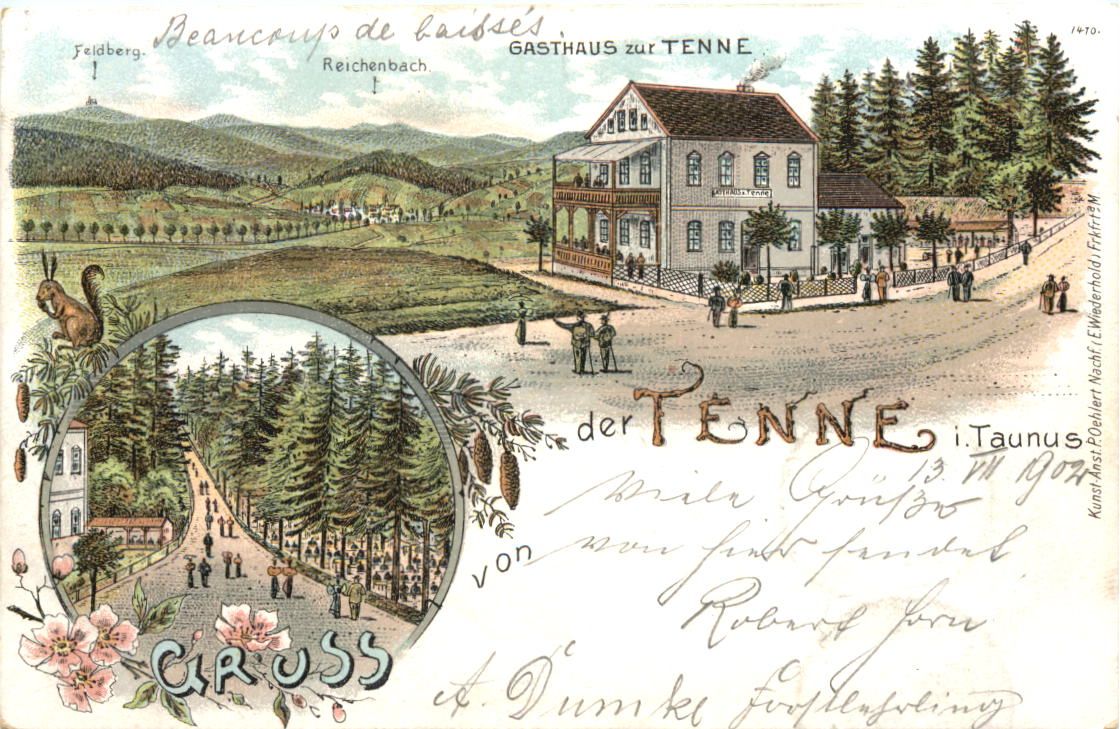 Beaucoup de baissés
1470.
Feldberg.
Reichenbach.
GASTHAUS zur TENNE
GASTHAUS z. TENNE
GRUSS
von
der TENNE i. TAUNUS
13. VII 1902
Viele Grüße
von hier sendet
Robert Horn
A. Dumke Forstlehrling
Kunst-Anst. P. Oehlert Nachf. i. E. Wiederhold i. Frkfrt a/M.